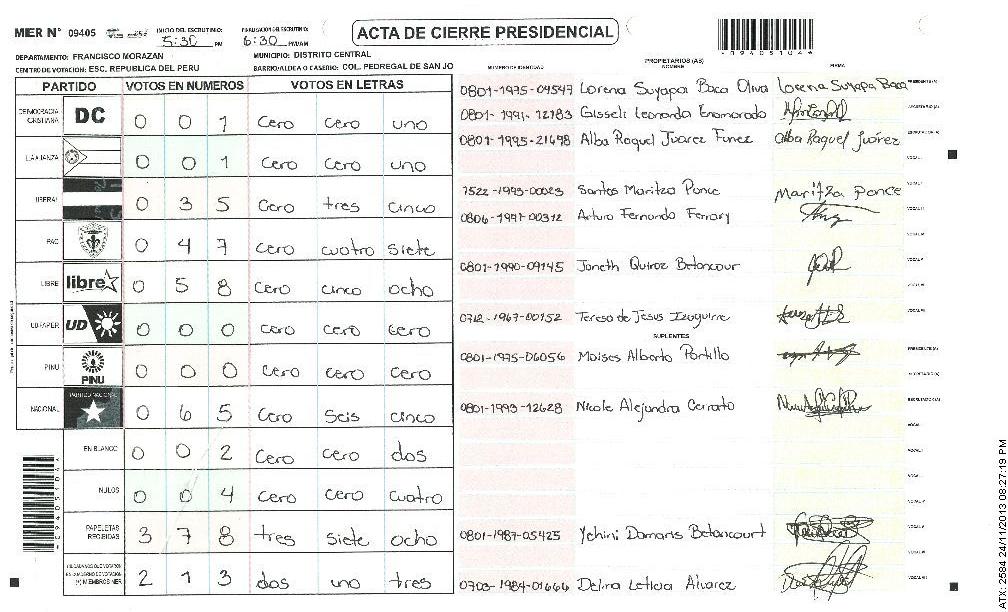 MIER N° 09405 INICIO DEL ESCRUTINIO: 5:30 PM FINALIZACION DEL ESCRUTINIO: 6:30 PM/AM
ACTA DE CIERRE PRESIDENCIAL
DEPARTAMENTO: FRANCISCO MORAZAN MUNICIPIO: DISTRITO CENTRAL
CENTRO DE VOTACION: ESC. REPUBLICA DEL PERU BARRIO/ALDEA O CASERIO: COL. PEDREGAL DE SAN JO
PARTIDO VOTOS EN NUMEROS VOTOS EN LETRAS
DEMOCRACIA CRISTIANA DC 0 0 1 cero cero uno
LA ALIANZA 0 0 1 cero cero uno
LIBERAL 0 3 5 cero tres cinco
PAC 0 4 7 cero cuatro siete
LIBRE libre 0 5 8 cero cinco ocho
UD/FAPER UD 0 0 0 cero cero cero
PINU PINU 0 0 0 cero cero cero
NACIONAL PARTIDO NACIONAL 0 6 5 cero seis cinco
EN BLANCO 0 0 2 cero cero dos
NULOS 0 0 4 cero cero cuatro
PAPELETAS RECIBIDAS 3 7 8 tres siete ocho
(+) MIEMBROS MER 2 1 3 dos uno tres
NUMERO DE IDENTIDAD PROPIETARIOS (AS) NOMBRE FIRMA
0801-1975-09547 Lorena Suyapa Baca Oliva Lorena Suyapa Baca PRESIDENTE (A)
0801-1991-12783 Gisseli Leonarda Enamorado SECRETARIO (A)
0801-1995-21698 Alba Raquel Juarez Funez Alba Raquel Juárez ESCRUTADOR (A)
VOCAL I
1522-1993-00023 Santos Maritza Ponce Maritza Ponce
0806-1991-00312 Arturo Fernando Ferrary
0801-1990-09145 Janeth Quiroz Betancour
0712-1967-00152 Teresa de Jesus Izaguirre
SUPLENTES
0801-1975-06056 Moises Alberto Portillo PRESIDENTE (A)
SECRETARIO (A)
0801-1993-12628 Nicole Alejandra Cerrato
0801-1987-05425 Yehini Damaris Betancourt
0703-1984-01666 Delina Letivia Alvarez
ATX: 2584 24/11/2013 08:27:19 PM